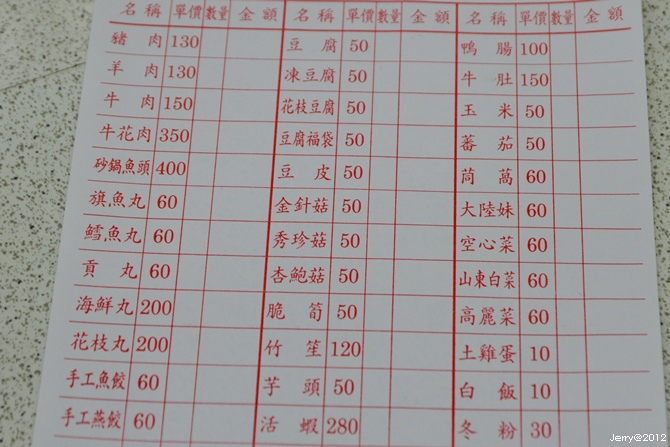 名稱 單價 數量 金額 名稱 單價 數量 金額 名稱 單價 數量 金額
豬肉 130 豆腐 50 鴨腸 100
羊肉 130 凍豆腐 50 牛肚 150
牛肉 150 花枝豆腐 50 玉米 50
牛花肉 350 豆腐福袋 50 蕃茄 50
砂鍋魚頭 400 豆皮 50 茼萵 60
旗魚丸 60 金針菇 50 大陸妹 60
鱈魚丸 60 秀珍菇 50 空心菜 60
貢丸 60 杏鮑菇 50 山東白菜 60
海鮮丸 200 脆筍 50 高麗菜 60
花枝丸 200 竹笙 120 土雞蛋 10
手工魚餃 60 芋頭 50 白飯 10
手工燕餃 60 活蝦 280 冬粉 30
Jerry@2012